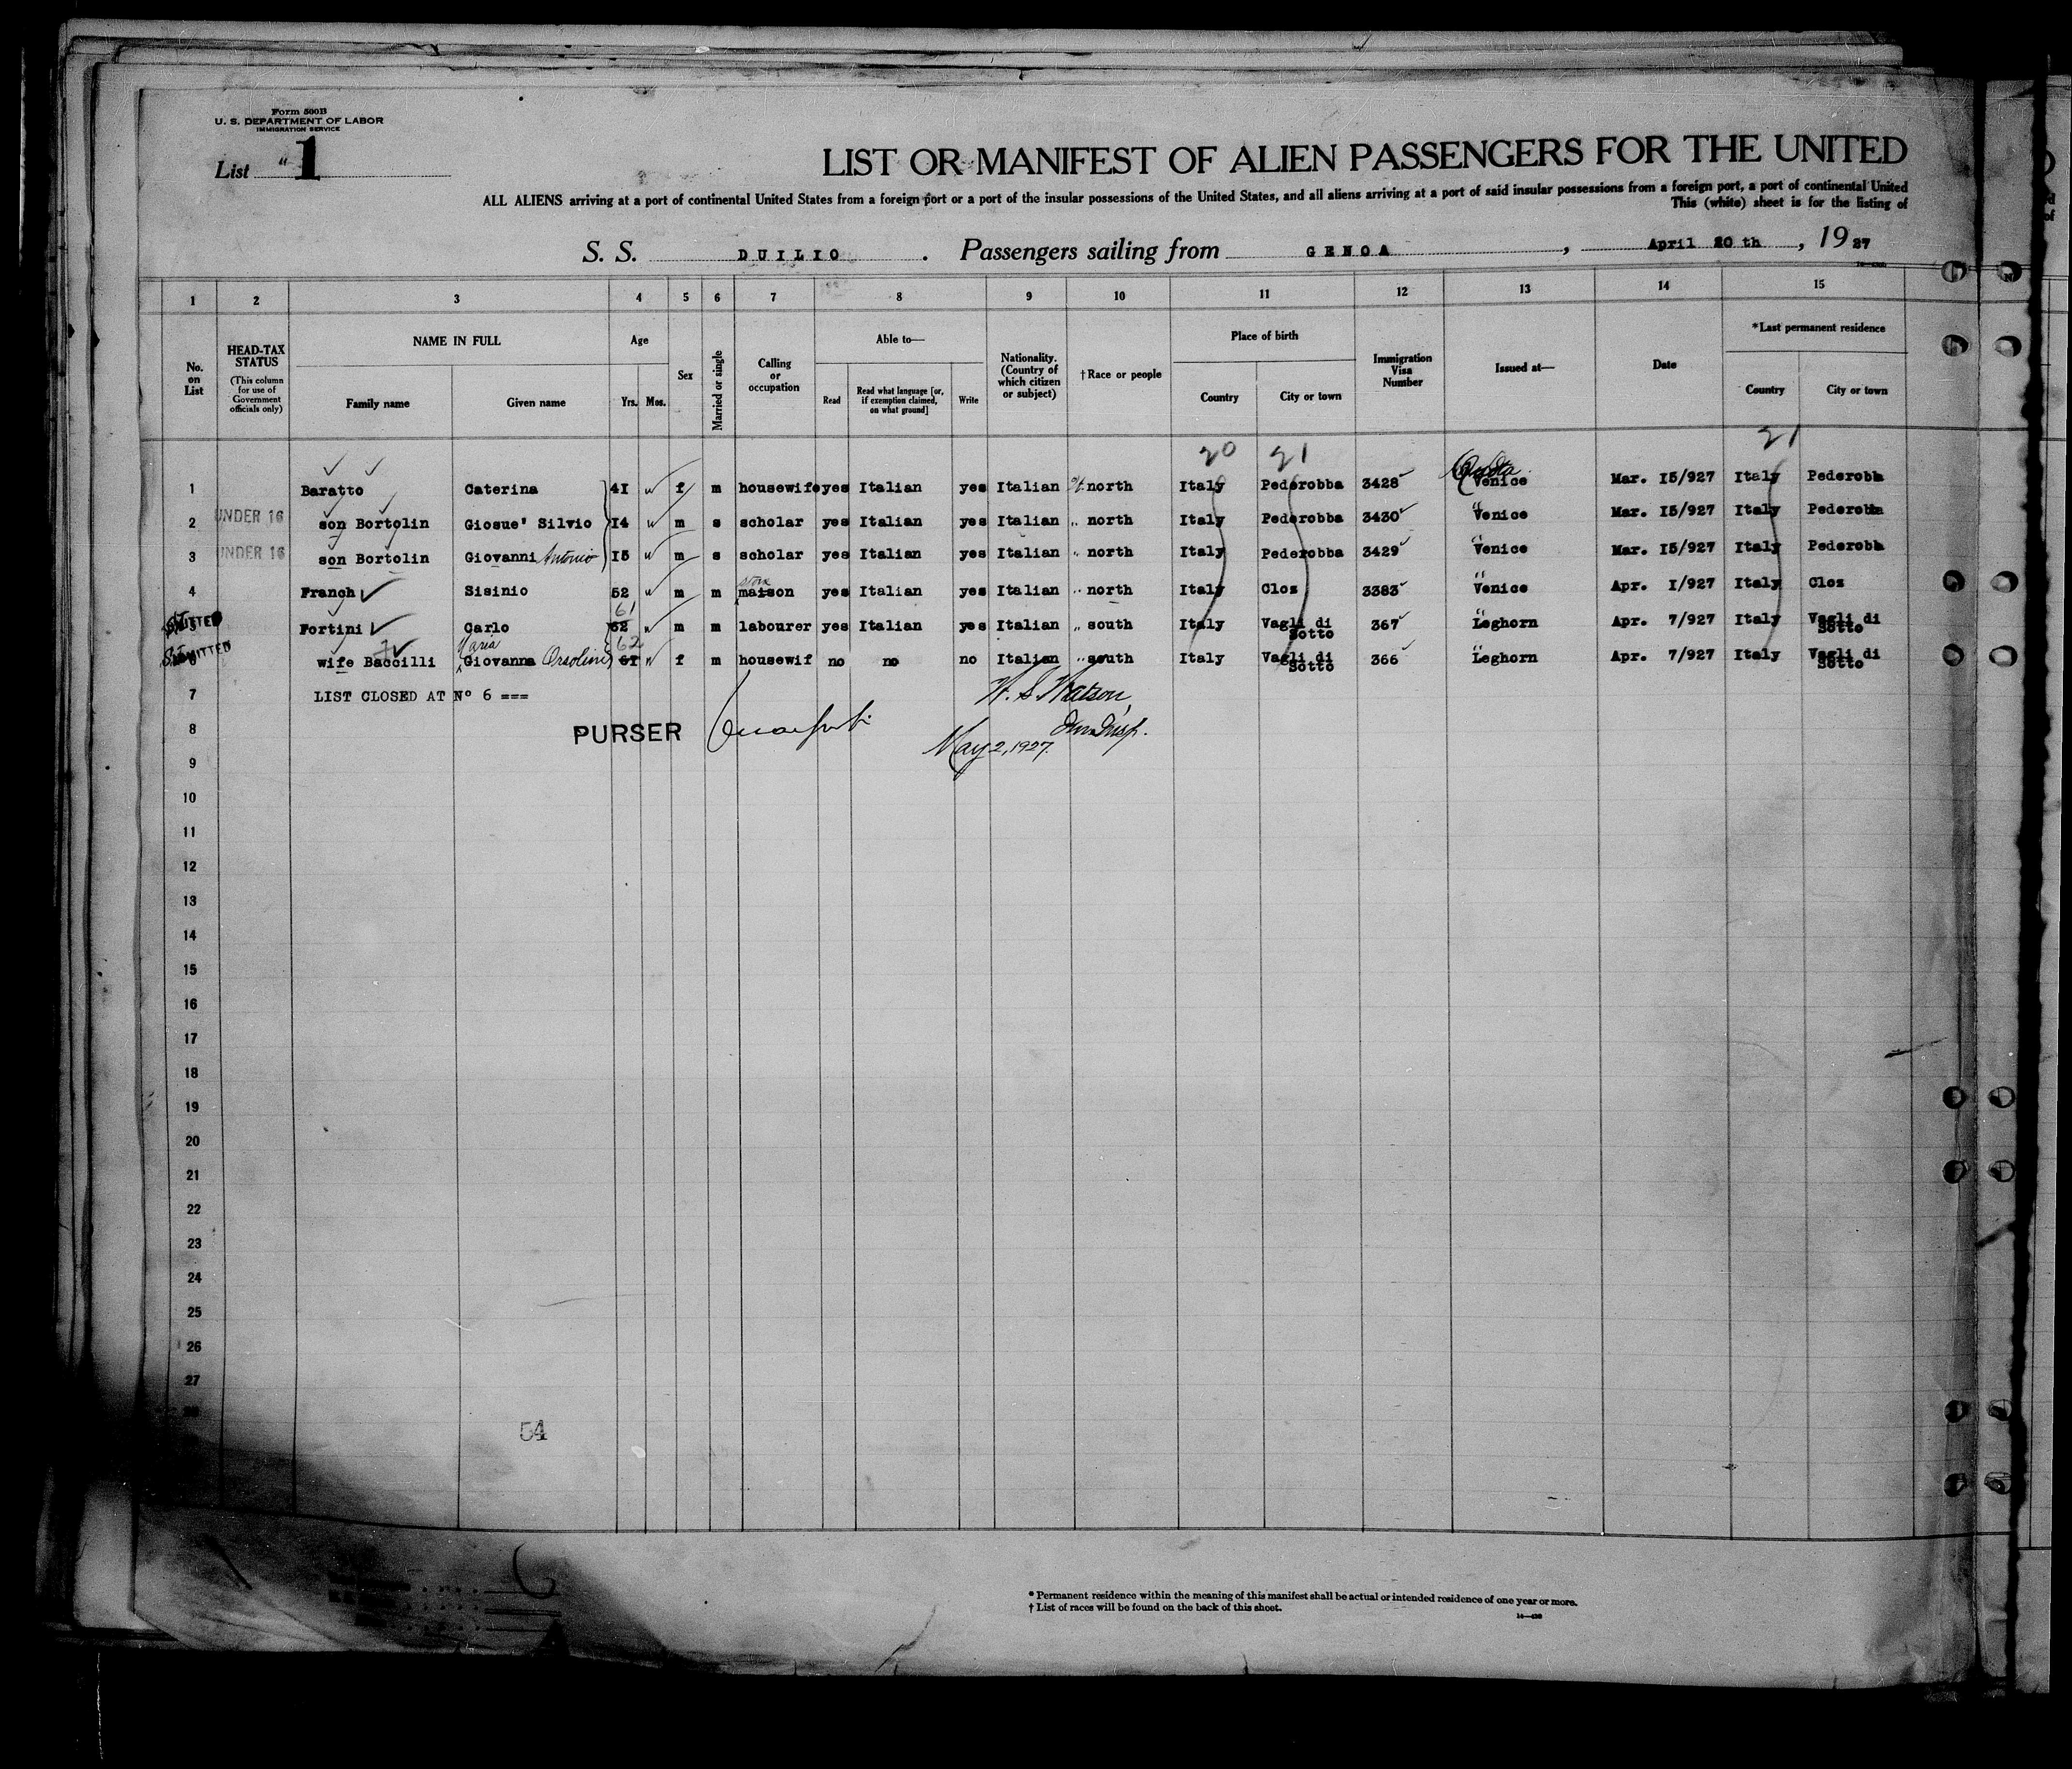 Form 500B
U. S. DEPARTMENT OF LABOR
IMMIGRATION SERVICE
List " 1
LIST OR MANIFEST OF ALIEN PASSENGERS FOR THE UNITED
ALL ALIENS arriving at a port of continental United States from a foreign port or a port of the insular possessions of the United States, and all aliens arriving at a port of said insular possessions from a foreign port, a port of continental United
This (white) sheet is for the listing of
S. S. DUILIO . Passengers sailing from GENOA , April 20 th , 19 27
1 2 3 4 5 6 7 8 9 10 11 12 13 14 15
No. on List
HEAD-TAX STATUS
(This column for use of Government officials only)
NAME IN FULL
Family name Given name
Age
Yrs. Mos.
Sex
Married or single
Calling or occupation
Able to—
Read
Read what language [or, if exemption claimed, on what ground]
Write
Nationality. (Country of which citizen or subject)
†Race or people
Place of birth
Country City or town
Immigration Visa Number
Issued at—
Date
*Last permanent residence
Country City or town
20 21 21
Quota
1 Baratto Caterina 4I f m housewife yes Italian yes Italian north Italy Pederobba 3428 Venice Mar. I5/927 Italy Pederobba
2 UNDER 16 son Bortolin Giosue' Silvio I4 m s scholar yes Italian yes Italian " north Italy Pederobba 3430 " Venice Mar. I5/927 Italy Pederobba
3 UNDER 16 son Bortolin Giovanni Antonio I5 m s scholar yes Italian yes Italian " north Italy Pederobba 3429 " Venice Mar. I5/927 Italy Pederobb
4 Franch Sisinio 52 m m stone matson yes Italian yes Italian " north Italy Cloz 3383 " Venice Apr. I/927 Italy Cloz
5 Fortini Carlo 61 62 m m labourer yes Italian yes Italian " south Italy Vagli di Sotto 367 " Leghorn Apr. 7/927 Italy Vagli di Sotto
wife Baccilli Maria Giovanna Orsolini 62 6I f m housewif no no no Italian " south Italy Vagli di Sotto 366 " Leghorn Apr. 7/927 Italy Vagli di Sotto
7 LIST CLOSED AT Nº 6 ===
W. S. Watson,
8 PURSER
Imm Insp.
May 2, 1927.
9
10
11
12
13
14
15
16
17
18
19
20
21
22
23
24
25
26
27
54
* Permanent residence within the meaning of this manifest shall be actual or intended residence of one year or more.
† List of races will be found on the back of this sheet.